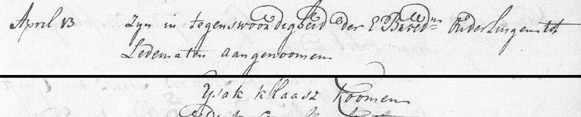 April 13 Zyn in tegenswoordigheid der E Broed^rn Ouderlingen tot
Ledematen aangenoomen
Ysak Klaasz Koomen